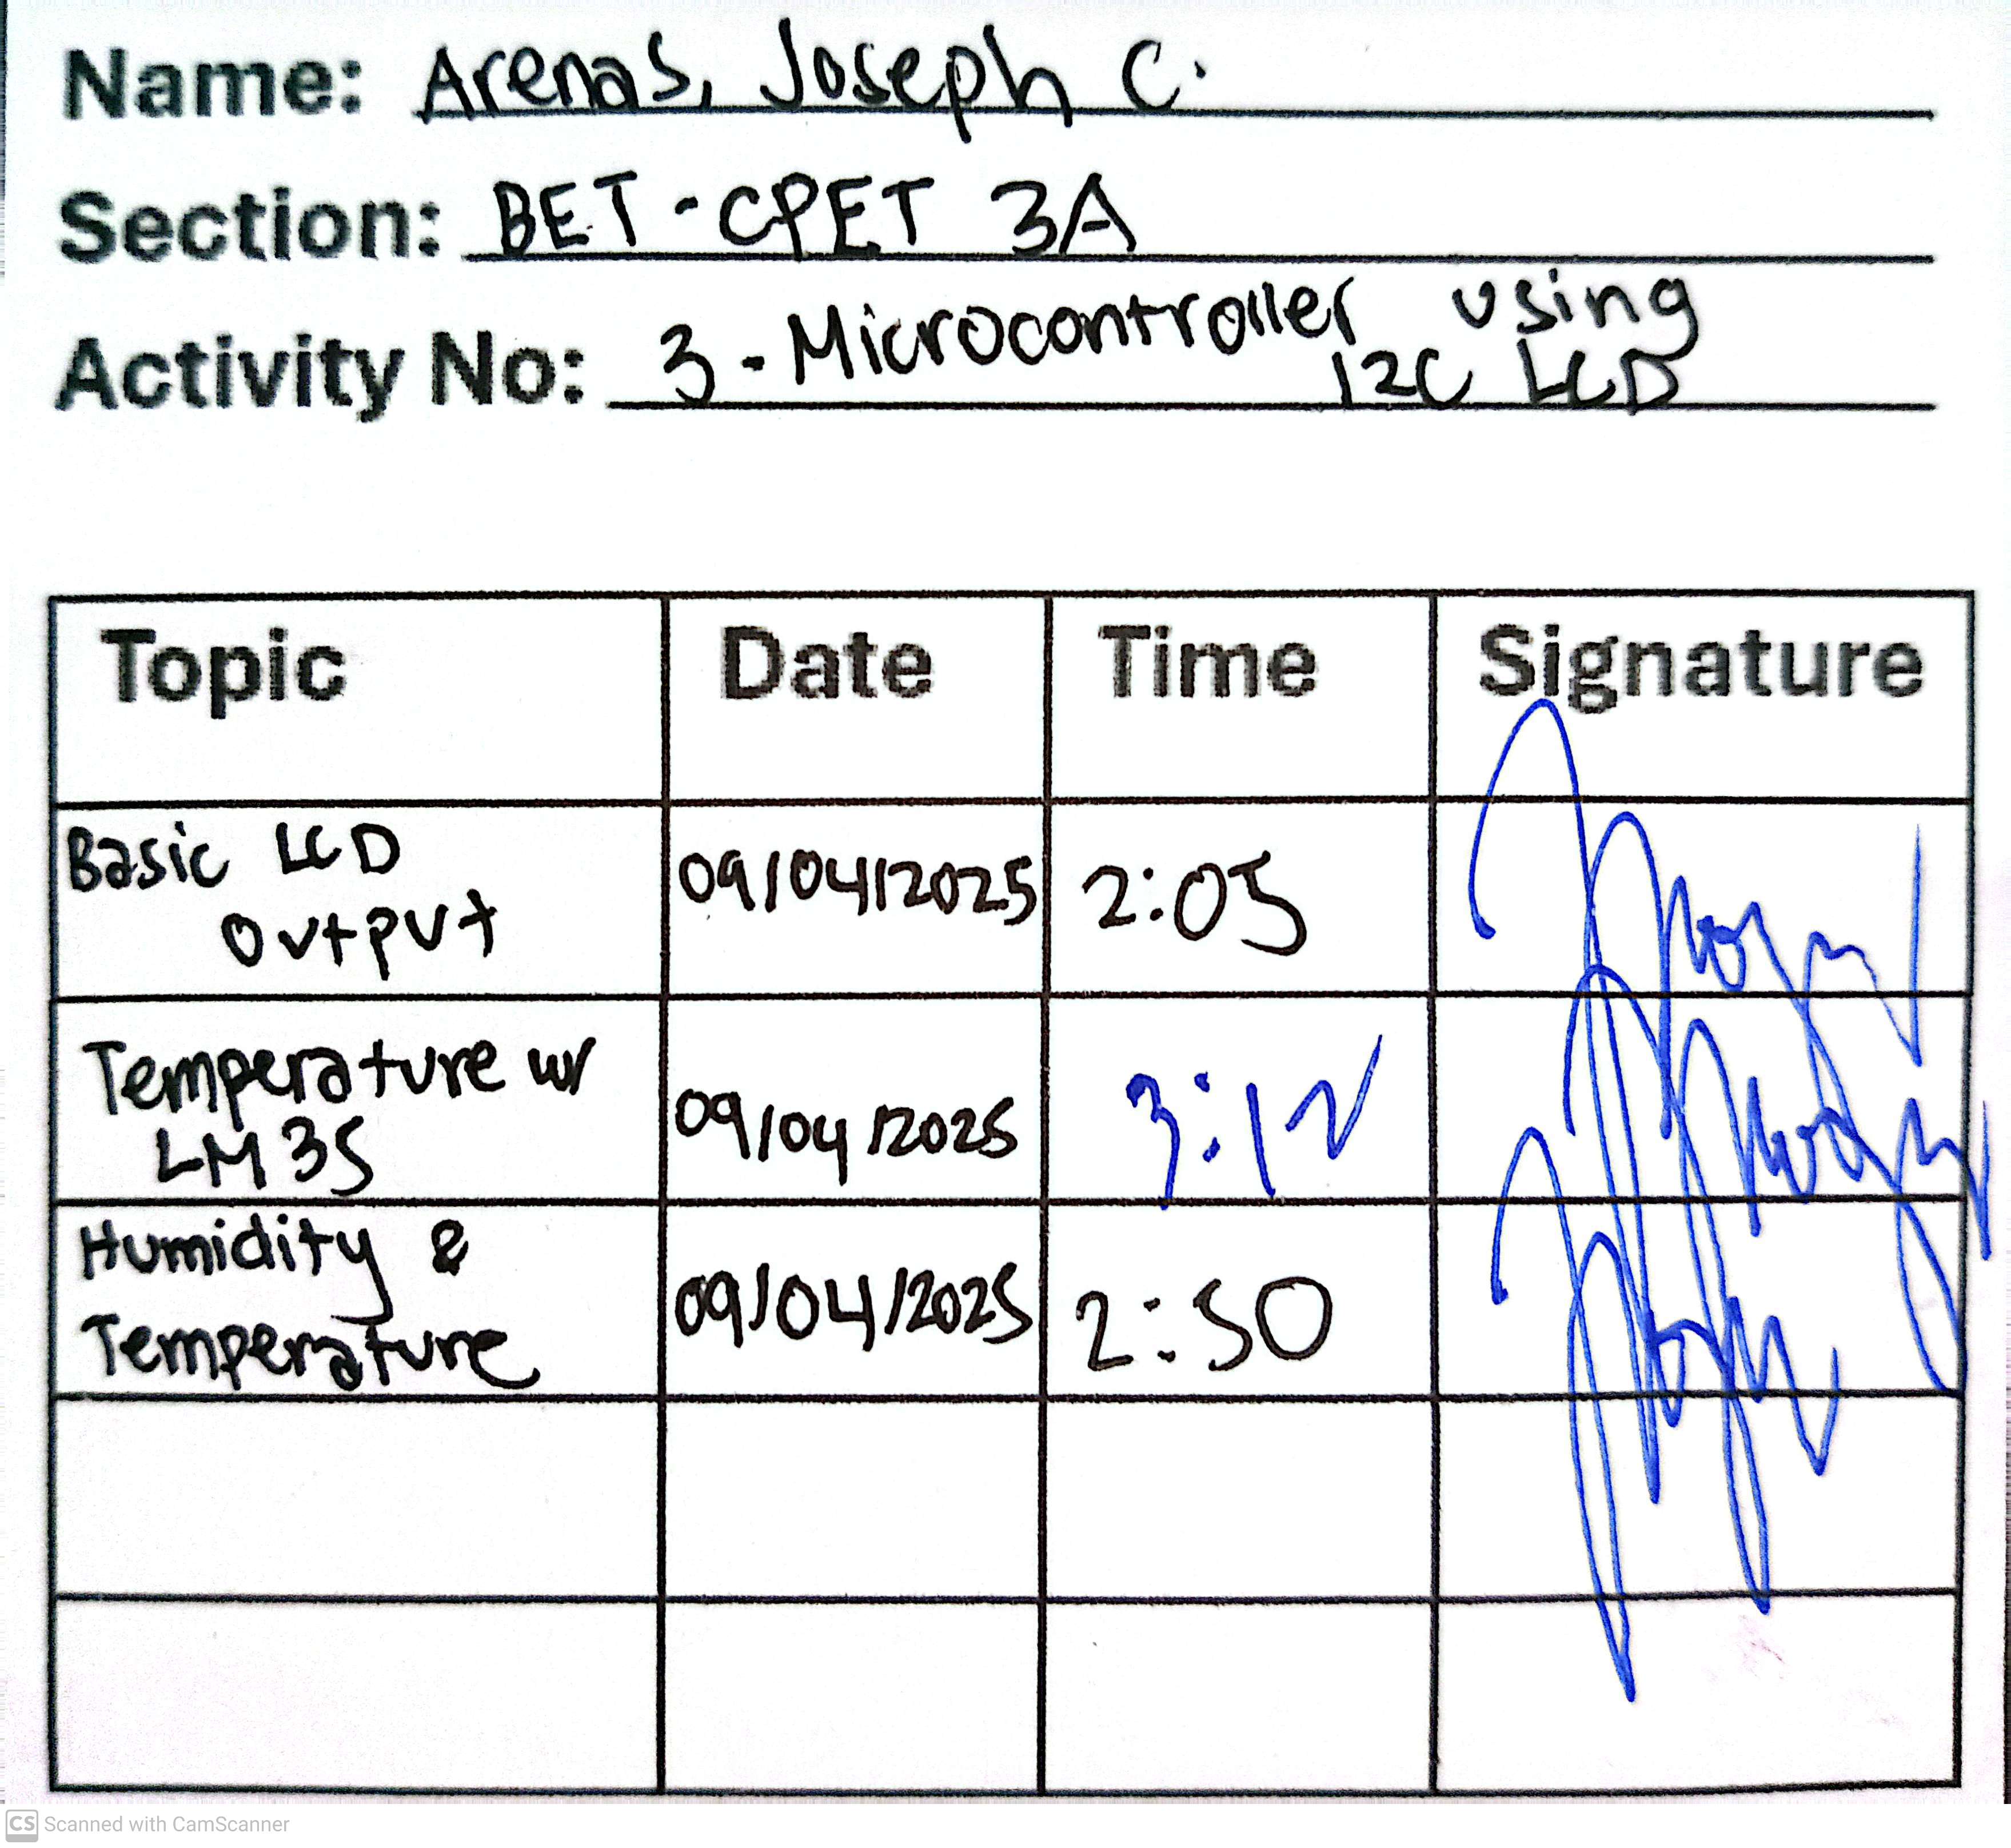 Name: Arenas, Joseph C.
Section: BET-CPET 3A
Activity No: 3-Microcontroller using
I2C LCD
Topic Date Time Signature
Basic LCD
Output 09/04/2025 2:05
Temperature w/
LM35 09/04/2025 3:12
Humidity &
Temperature 09/04/2025 2:50
CS Scanned with CamScanner